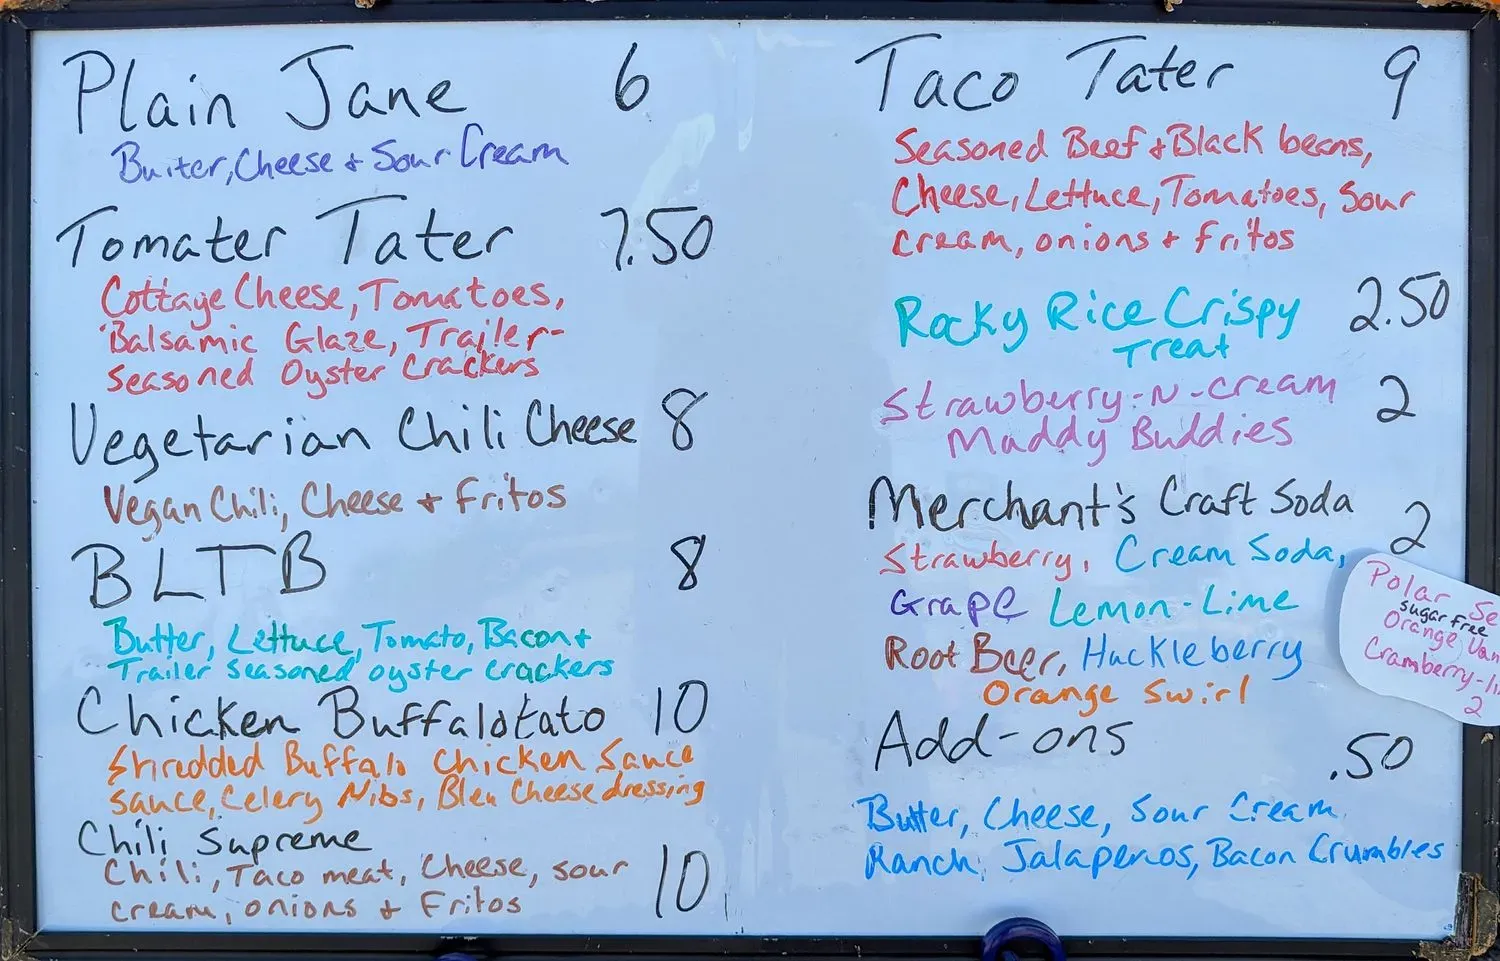 Plain Jane 6
Butter, Cheese + Sour Cream
Tomater Tater 7.50
Cottage Cheese, Tomatoes,
Balsamic Glaze, Trailer-
seasoned Oyster Crackers
Vegetarian Chili Cheese 8
Vegan Chili, Cheese + Fritos
BLTB 8
Butter, Lettuce, Tomato, Bacon +
Trailer seasoned oyster crackers
Chicken Buffalotato 10
Shredded Buffalo Chicken Sauce
sauce, Celery Nibs, Bleu Cheese dressing
Chili Supreme
Chili, Taco meat, Cheese, sour
cream, onions + Fritos 10
Taco Tater 9
Seasoned Beef + Black beans,
Cheese, Lettuce, Tomatoes, Sour
cream, onions + Fritos
Rocky Rice Crispy 2.50
Treat
Strawberry-N-cream 2
Muddy Buddies
Merchant's Craft Soda 2
Strawberry, Cream Soda,
Grape Lemon-Lime
Root Beer, Huckleberry
Orange Swirl
Polar
sugar free
Orange
Cramberry-
2
Add-ons .50
Butter, Cheese, Sour Cream
Ranch, Jalapenos, Bacon Crumbles